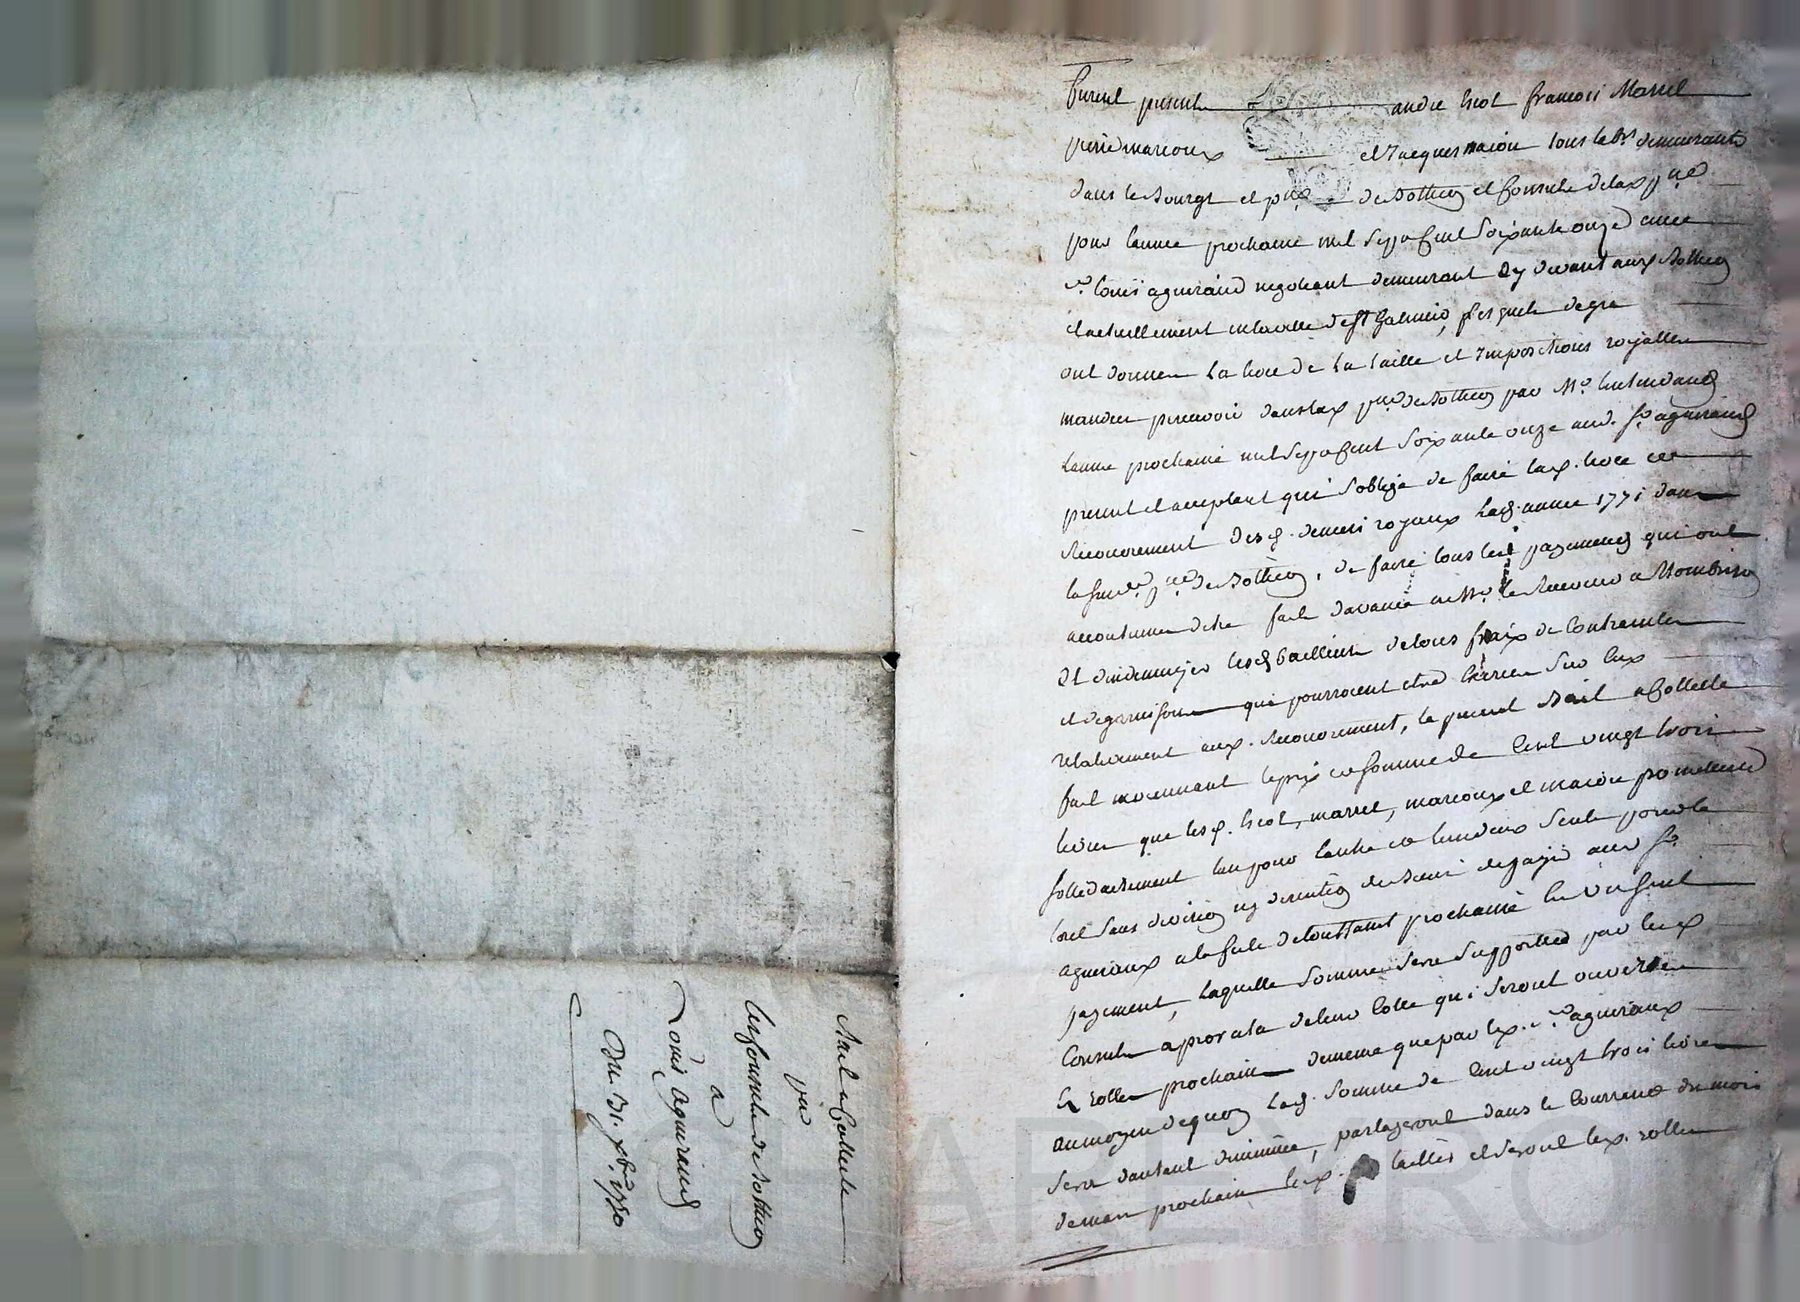 furent presents andre heot francois Massel
pierre marcoux et Jacques maion tous lab.rs demeurants
dans le Bourgt et p.sse de Bothieon et Consuls de lad. p.sse
pour lannee prochaine mil sept Cent Soixante onze avec
s.r louis aguiraud negotiant demeurant Cy devant aud. Bothieon
et actuellement en la ville de st Galmier, lesquels de gre
ont donnes la levee de la taille et Impositions royalles
mandees percevoir dans lad. p.sse de Bothieon par M.r lintendant
lannee prochaine mil sept Cent Soixante onze aud. s.r aguiraud
present et acceptant qui soblige de faire lad. levee et
Recouvrement desd. deniers royaux lad. annee 1771 dans
la susd. p.sse de Bothieon, de faire tous les payements qui ont
accoutume detre faits davance a Mr le Receveur a Montbrison
Et dindemnizer lesd. bailleurs de tous fraix de Contraintes
et de garnisons que pourroient etre livrees Sur Eux
relativement aud. Recouvrement, le present Bail a Collecte
fait moiennant le prix et somme de Cent vingt trois
livres que lesd. heot, massel, marcoux et maion promettent
sollidairement lun pour lautre et lun deux Seul pour le
tout sans division ny discution de Biens de payer aud. s.r
aguiraud a la fete de toussaint prochaine En Un seul
payement, laquelle somme sera Supportee par les d.
Consuls a prorata de leur Cotte qui seront ouvertes
Es rolles prochains de meme que par led. s.r aguiraud
au moyen de quoy lad. somme de Cent vingt trois livres
sera dautant diminuee, partageront dans le Courrant du mois
de mars prochain lesd. tailles et seront lesd. rolles
Bail a Collecte
par
les Consuls de Bothieon
a
Louis Aguiraud
Du 31. Xbre 1770